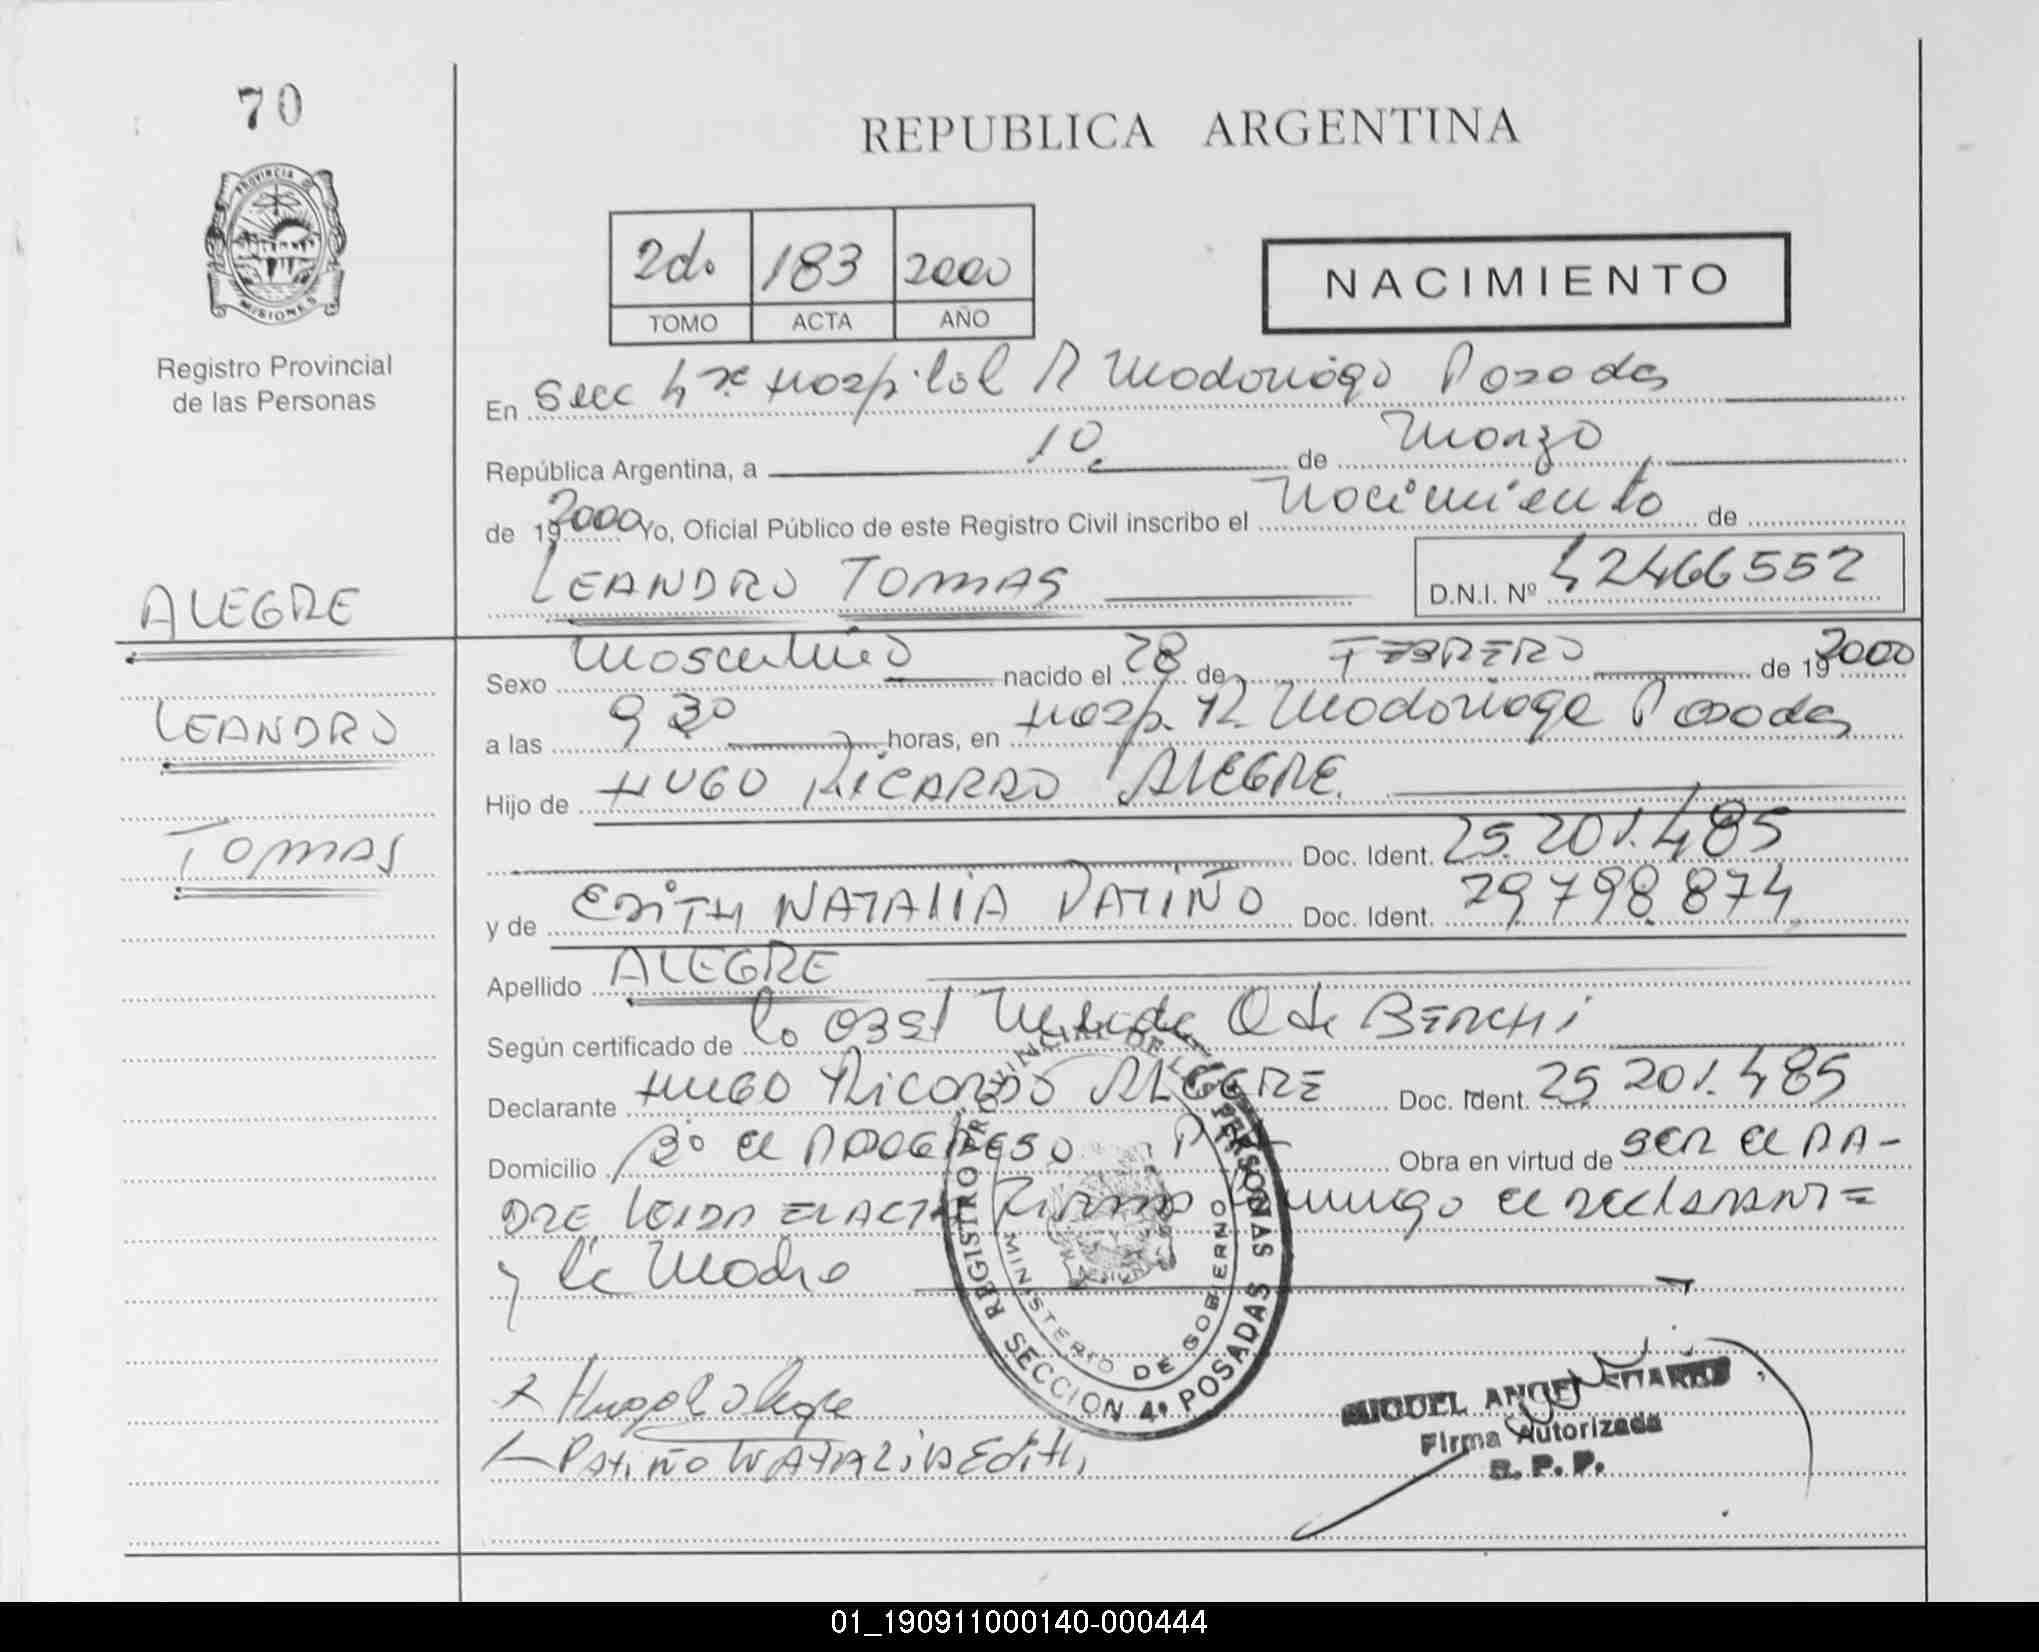 70
REPUBLICA ARGENTINA
PROVINCIA DE
MISIONES
Registro Provincial
de las Personas
2do 183 2000
TOMO ACTA AÑO
NACIMIENTO
En Secc 4ta Hospital R Madariaga Posadas
República Argentina, a 10 de Marzo
de 19 2000 Yo, Oficial Público de este Registro Civil inscribo el Nacimiento de
LEANDRO TOMAS
D.N.I. Nº 42466552
ALEGRE
LEANDRO
TOMAS
Sexo Masculino nacido el 28 de FEBRERO de 19 2000
a las 9 30 horas, en Hosp. R Madariaga Posadas
Hijo de HUGO RICARDO ALEGRE
Doc. Ident. 25.201.485
y de EDITH NATALIA PATIÑO Doc. Ident. 29798874
Apellido ALEGRE
Según certificado de la Obst BERCHI
Declarante HUGO RICARDO ALEGRE Doc. Ident. 25 201.485
Domicilio Bº el PROGRESO Obra en virtud de SER el PA-
DRE LEIDA EL ACTA FIRMAN conmigo el DECLARANTE
y la Madre
REGISTRO PROVINCIAL DE LAS PERSONAS
SECCION 4ª POSADAS
MINISTERIO DE GOBIERNO
Hugo R Alegre
PATIÑO NATALIA Edith
MIGUEL ANGEL
Firma Autorizada
R. P. P.
01_190911000140-000444